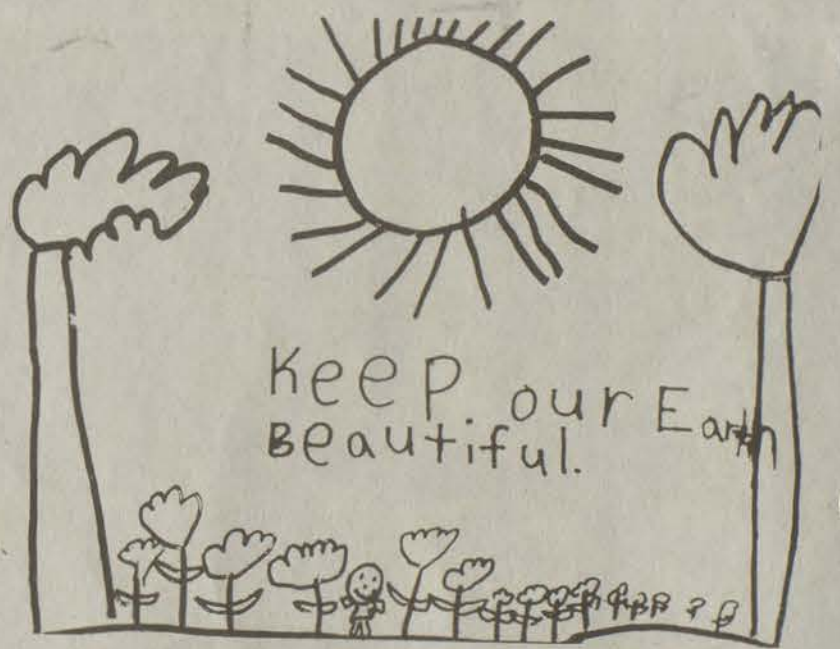 Keep our Earth
Beautiful.